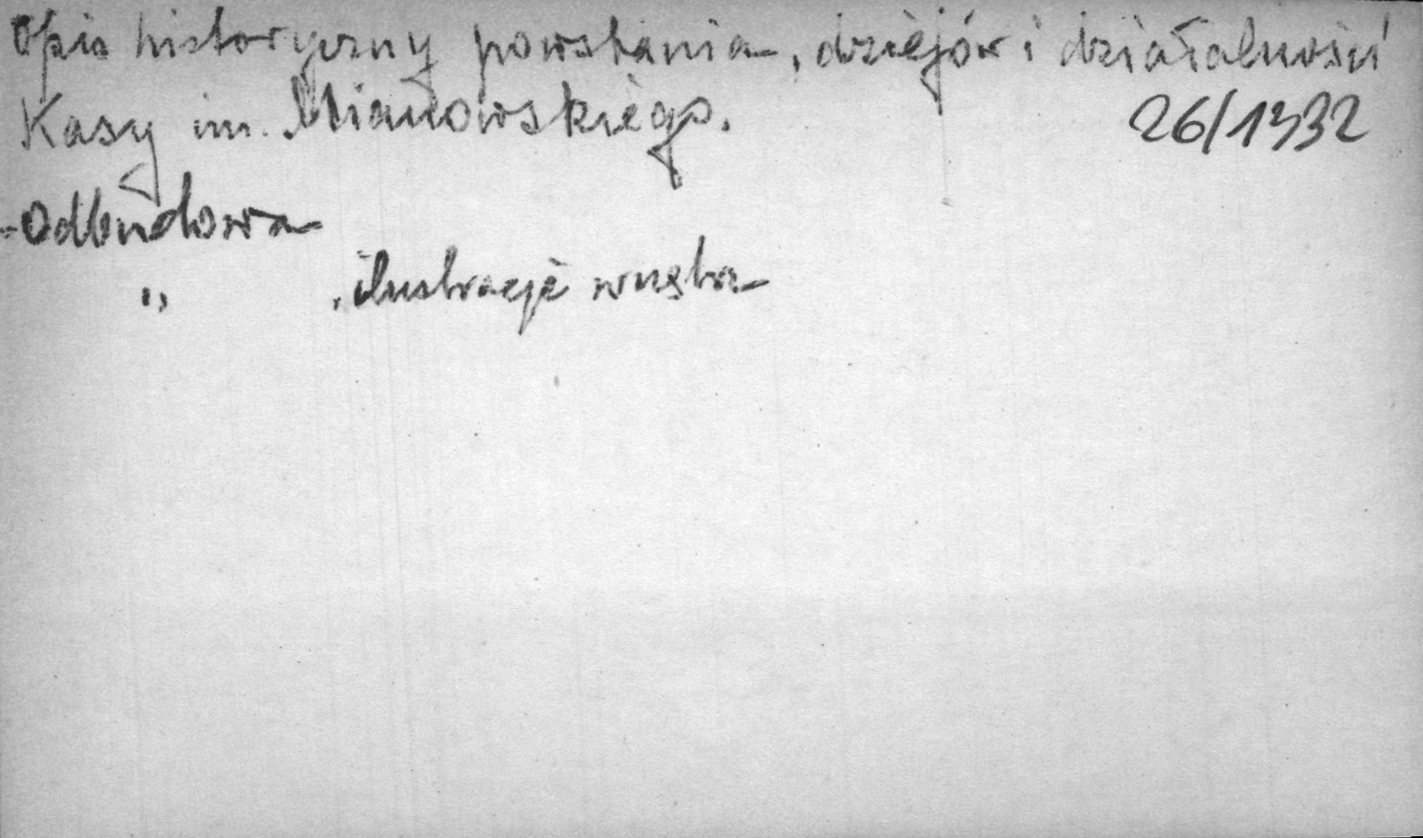 Opis historyczny powstania, dziejów i działalności
Kasy im. Mianowskiego. 26/1932
- Odbudowa
„ , ilustracje wnętrza